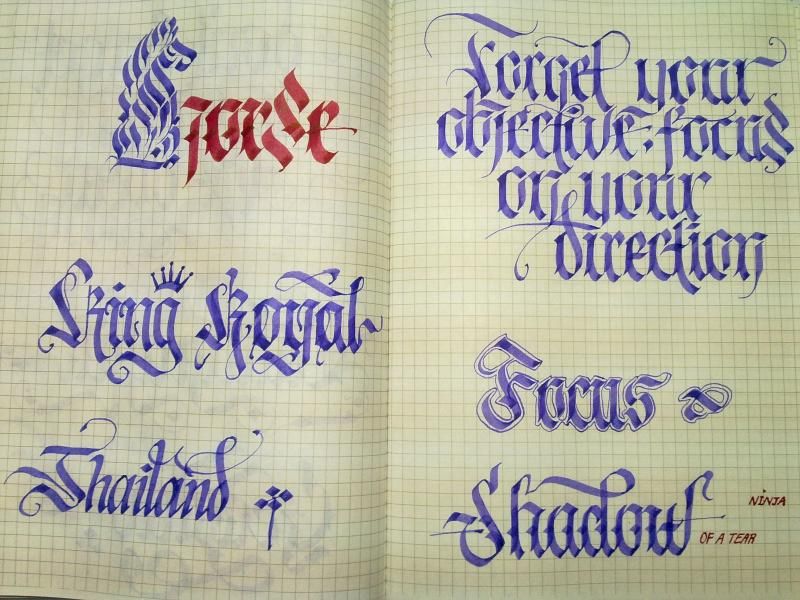 King Royal
Thailand
Forget your
objective: focus
on your
direction
Focus
Shadow
NINJA
OF A TEAR